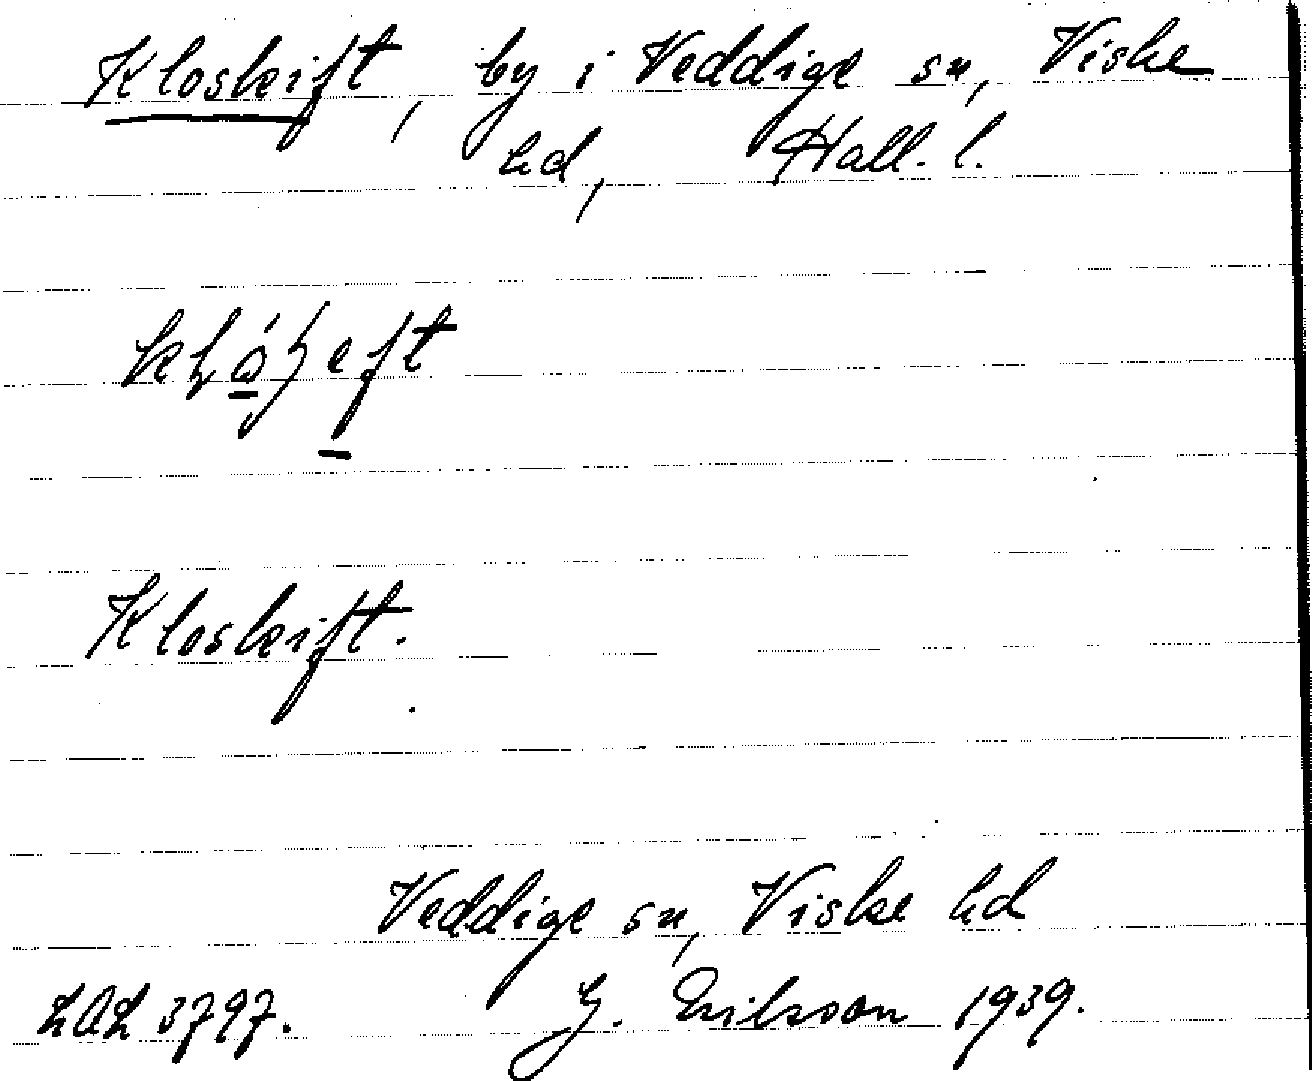 Kloskift, by i Veddige sn, Viske
hd, Hall. l.
Kloskift.
Veddige sn, Viske hd
LAL 3797. G. Nilsson 1939.